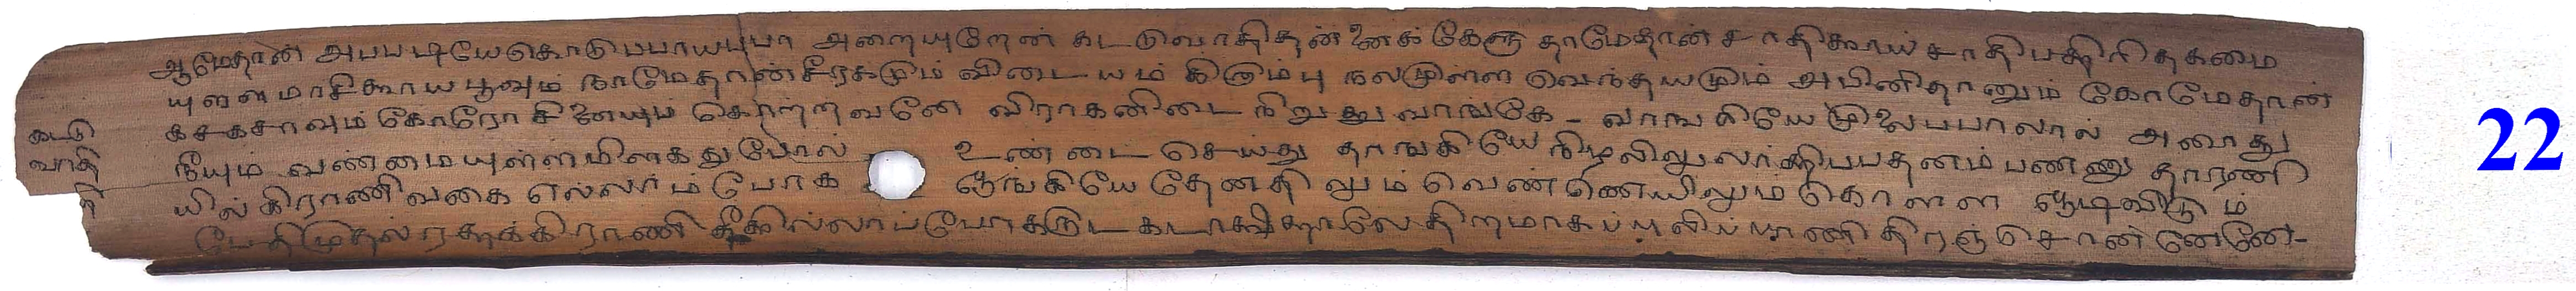 ஆமேதான் அபபடியேகொடுபபாயபபா அறையுறேன் கடடுவாதிதன்னைக்கேளு தாமேதான் சாதிகாய் சாதிபத்திரி தகமை
யுளளமாசிகாயபூவும் நாமேதான்சீரகமும் விடையம் கிறாம்பு நலமுள்ள வெந்தயமும் அபினிதானும் கோமேதான்
கசகசாவும் கோரோசினையும் கொற்றவனே விராகனிடை நிறுதுவாங்கே - வாஙகியேமுலைபபாலால் அரைது
கடடு
வாதி
நீயும் வண்மையுள்ளமிளகதுபோல் உண்டை செய்து தாஙகியே நிழலிலுலர்த்திபபதனம் பண்ணு தாரணி
தி
யில் கிராணிவகை எல்லாம் போக தேனதிலும் வெண்ணெயிலும் கொளள ஓடிவிடும்
பேதிமுதல் ரதைக்கிராணி கடாக்ஷதாலே திறமாகப்புலிப்பாணி சொன்னேனே-
22